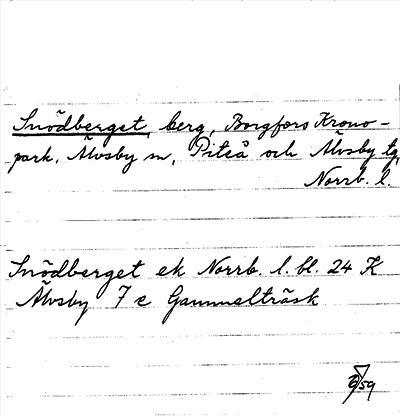 Snödberget, berg, Borgfors Krono-
park, Älvsby sn, Piteå och Älvsby tg,
Norrb. l.
Snödberget ek Norrb. l. bl. 24 K
Älvsby 7 e Gammelträsk
/59